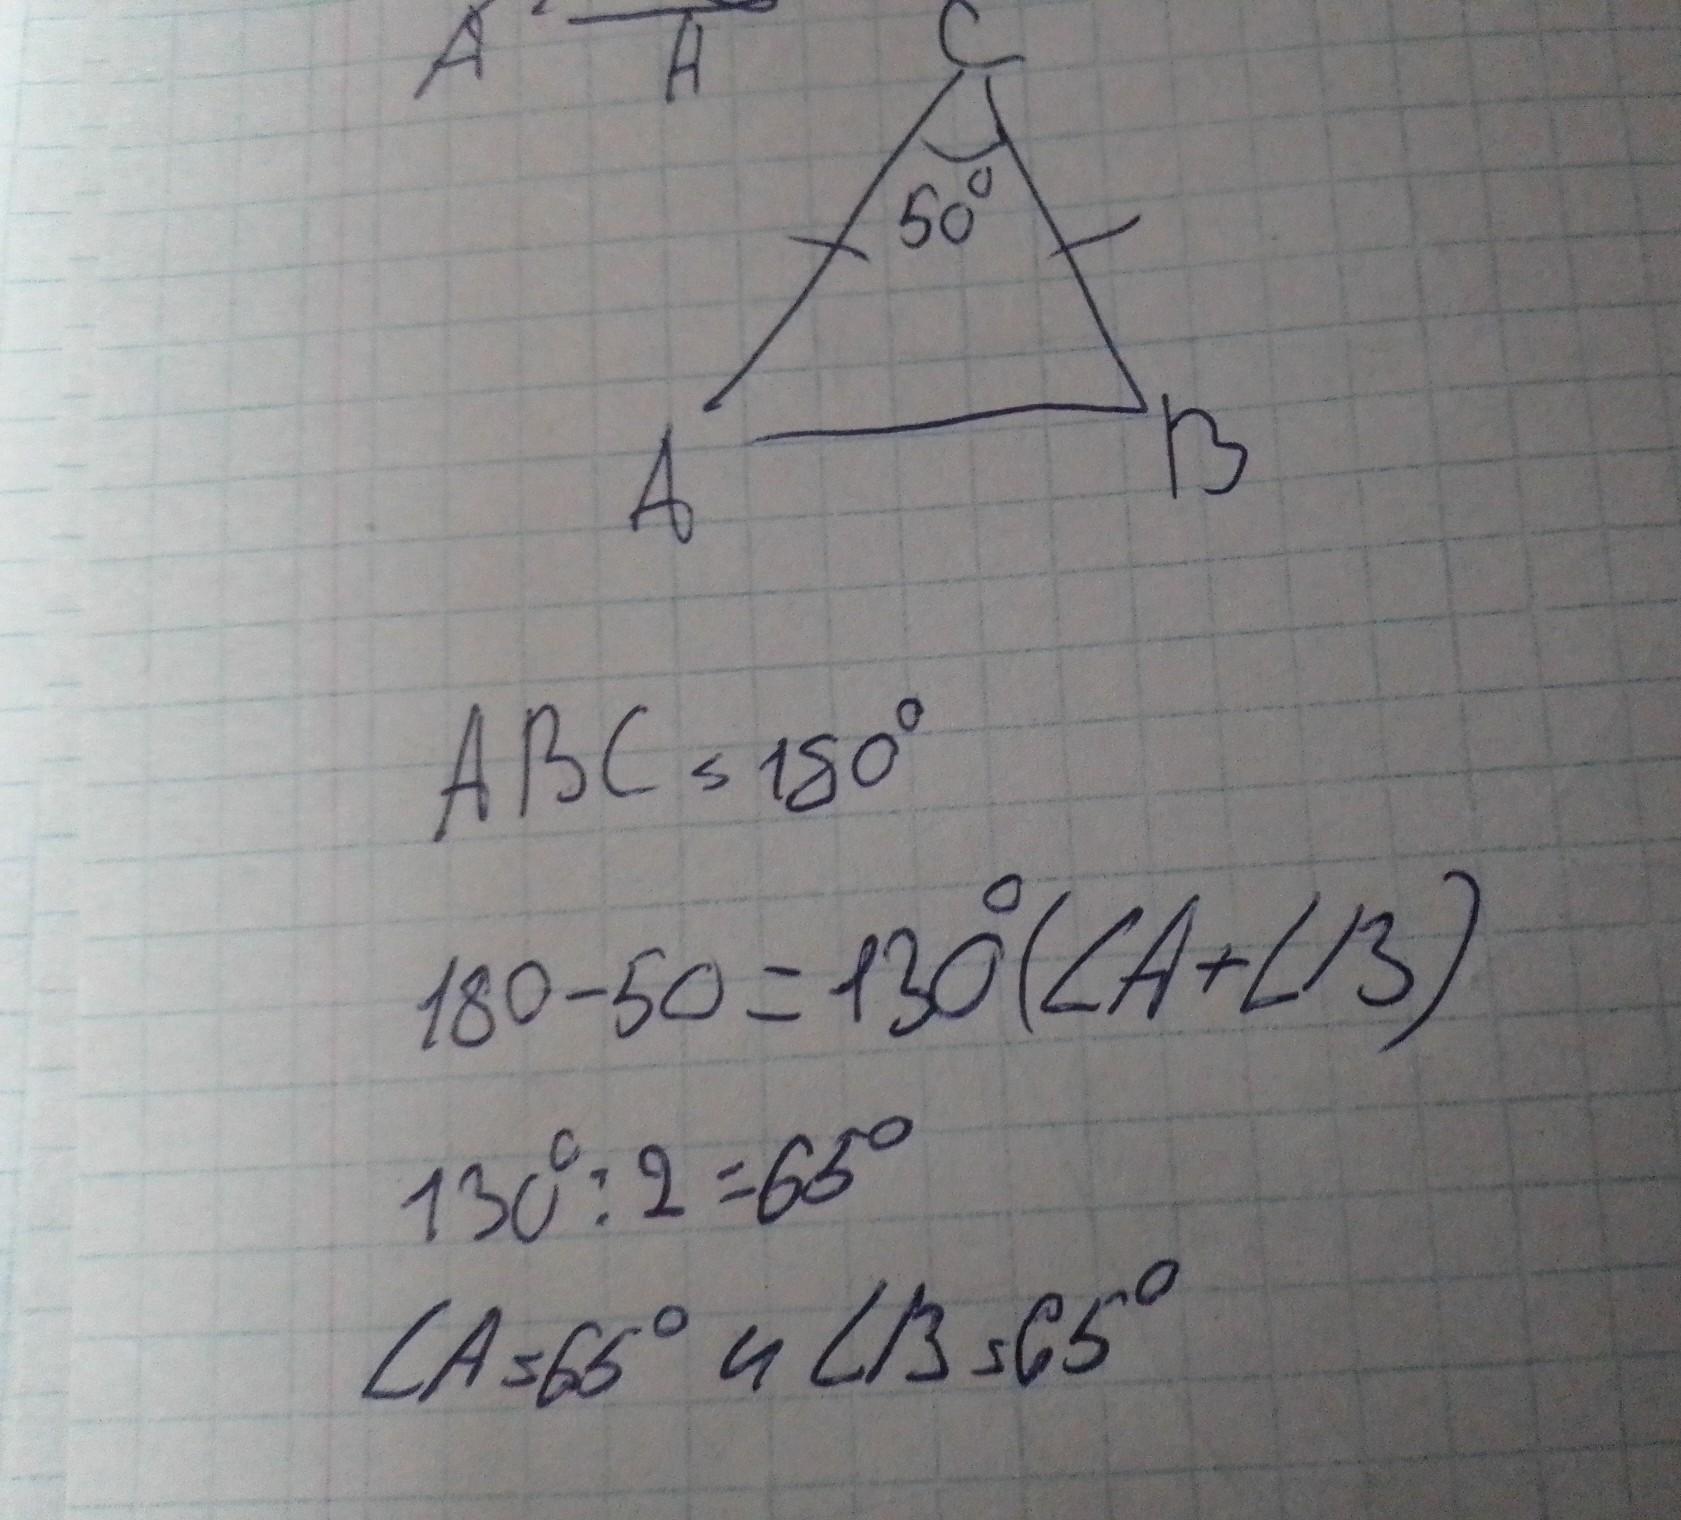 A H
C
50°
A B
ABC = 180°
180-50=130°(∠A+∠B)
130°:2=65°
∠A=65° и ∠B=65°